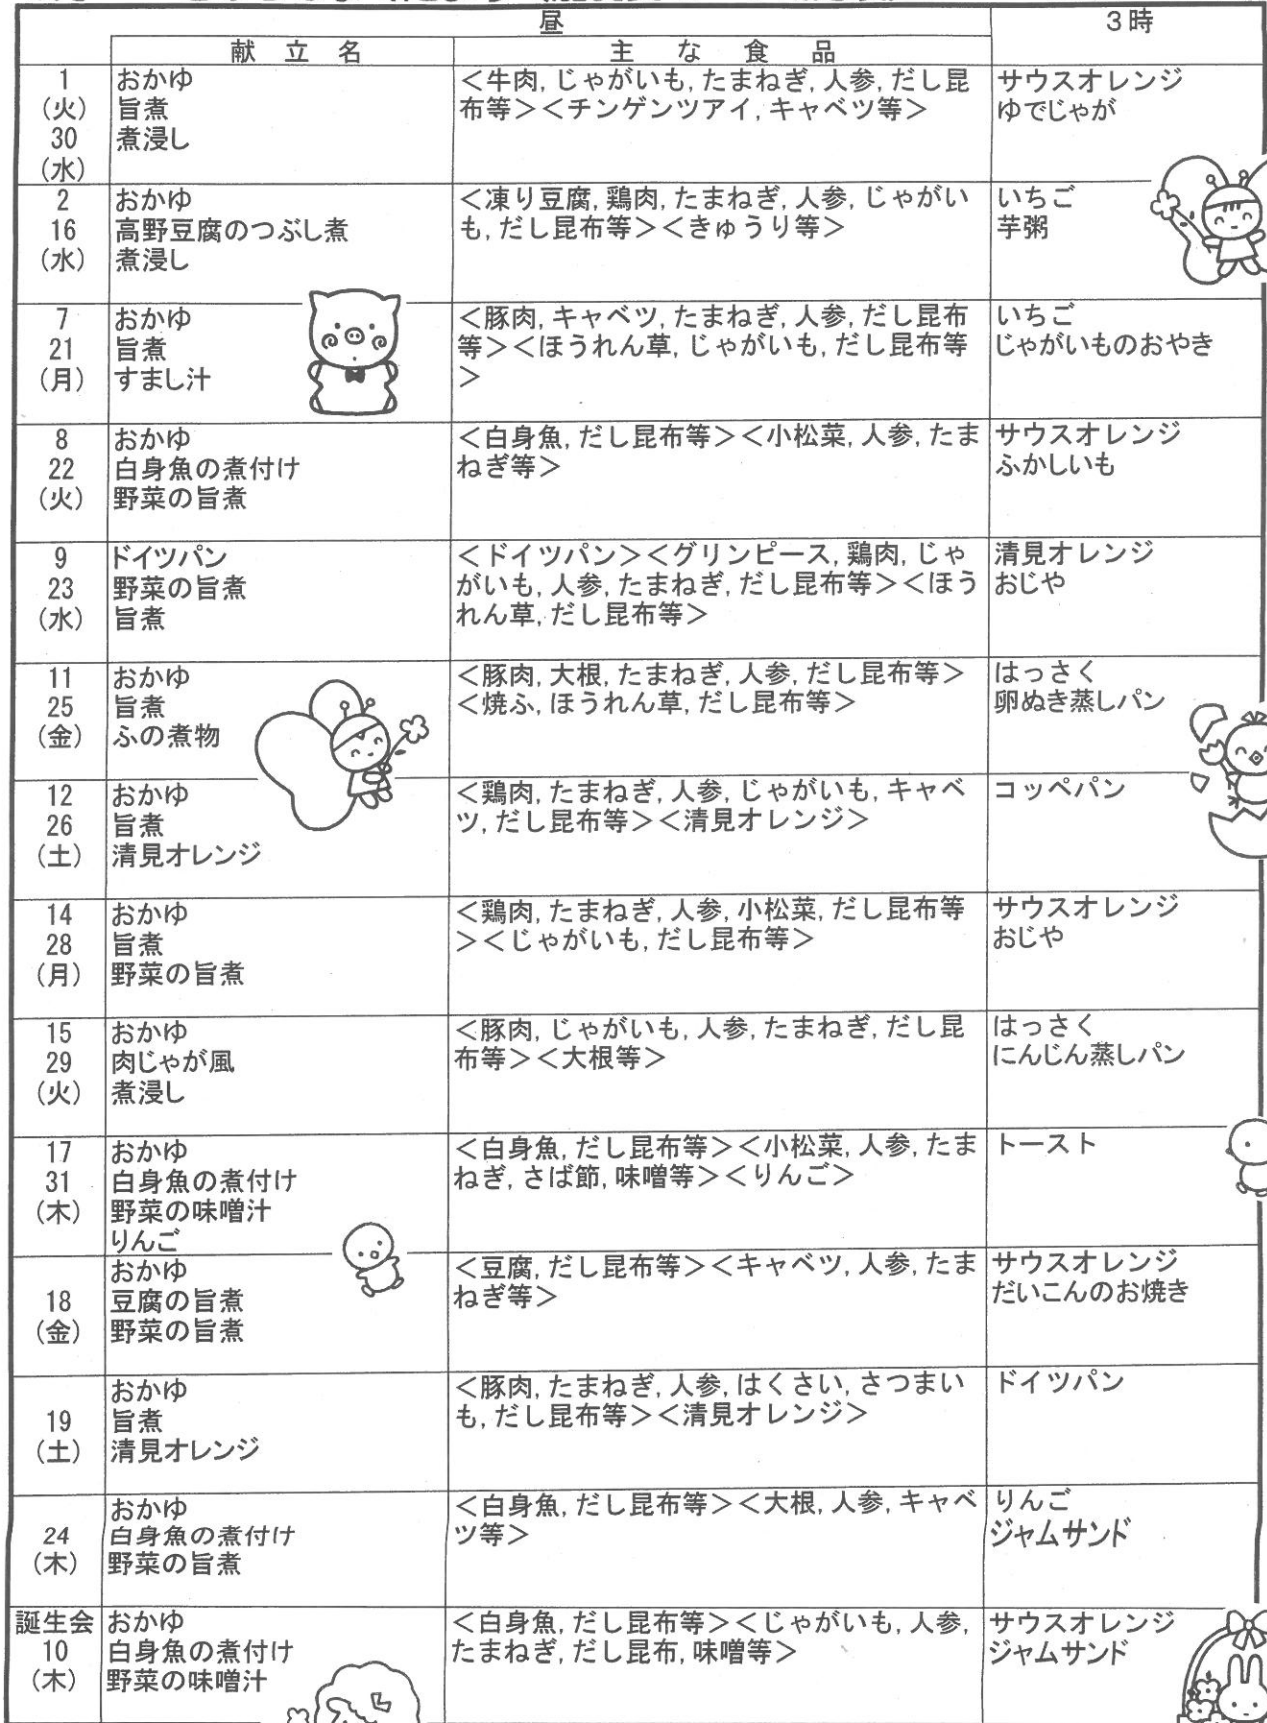 昼
3時
献立名
主な食品
1
(火)
30
(水)
おかゆ
旨煮
煮浸し
<牛肉, じゃがいも, たまねぎ, 人参, だし昆
布等><チンゲンツアイ, キャベツ等>
サウスオレンジ
ゆでじゃが
2
16
(水)
おかゆ
高野豆腐のつぶし煮
煮浸し
<凍り豆腐, 鶏肉, たまねぎ, 人参, じゃがい
も, だし昆布等><きゅうり等>
いちご
芋粥
7
21
(月)
おかゆ
旨煮
すまし汁
<豚肉, キャベツ, たまねぎ, 人参, だし昆布
等><ほうれん草, じゃがいも, だし昆布等
>
いちご
じゃがいものおやき
8
22
(火)
おかゆ
白身魚の煮付け
野菜の旨煮
<白身魚, だし昆布等><小松菜, 人参, たま
ねぎ等>
サウスオレンジ
ふかしいも
9
23
(水)
ドイツパン
野菜の旨煮
旨煮
<ドイツパン><グリンピース, 鶏肉, じゃ
がいも, 人参, たまねぎ, だし昆布等><ほう
れん草, だし昆布等>
清見オレンジ
おじや
11
25
(金)
おかゆ
旨煮
ふの煮物
<豚肉, 大根, たまねぎ, 人参, だし昆布等>
<焼ふ, ほうれん草, だし昆布等>
はっさく
卵ぬき蒸しパン
12
26
(土)
おかゆ
旨煮
清見オレンジ
<鶏肉, たまねぎ, 人参, じゃがいも, キャベ
ツ, だし昆布等><清見オレンジ>
コッペパン
14
28
(月)
おかゆ
旨煮
野菜の旨煮
<鶏肉, たまねぎ, 人参, 小松菜, だし昆布等
><じゃがいも, だし昆布等>
サウスオレンジ
おじや
15
29
(火)
おかゆ
肉じゃが風
煮浸し
<豚肉, じゃがいも, 人参, たまねぎ, だし昆
布等><大根等>
はっさく
にんじん蒸しパン
17
31
(木)
おかゆ
白身魚の煮付け
野菜の味噌汁
りんご
<白身魚, だし昆布等><小松菜, 人参, たま
ねぎ, さば節, 味噌等><りんご>
トースト
18
(金)
おかゆ
豆腐の旨煮
野菜の旨煮
<豆腐, だし昆布等><キャベツ, 人参, たま
ねぎ等>
サウスオレンジ
だいこんのお焼き
19
(土)
おかゆ
旨煮
清見オレンジ
<豚肉, たまねぎ, 人参, はくさい, さつまい
も, だし昆布等><清見オレンジ>
ドイツパン
24
(木)
おかゆ
白身魚の煮付け
野菜の旨煮
<白身魚, だし昆布等><大根, 人参, キャベ
ツ等>
りんご
ジャムサンド
誕生会
10
(木)
おかゆ
白身魚の煮付け
野菜の味噌汁
<白身魚, だし昆布等><じゃがいも, 人参,
たまねぎ, だし昆布, 味噌等>
サウスオレンジ
ジャムサンド